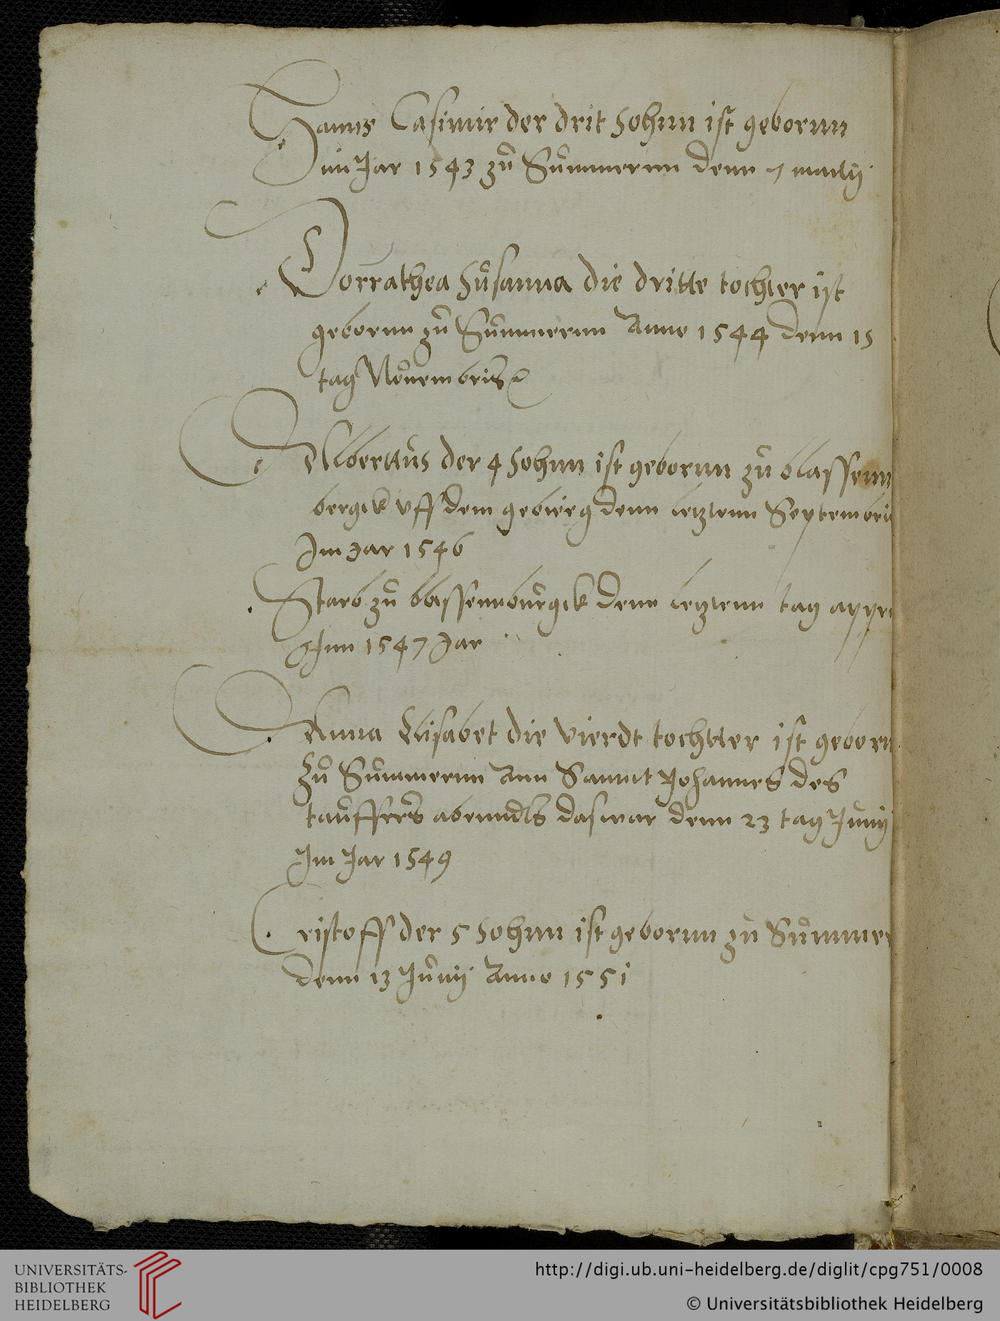 Hanns Casimir der drit sohnn ist gebornn
im Jar 1543 zů Sůmmernn denn 7 martij
Dorrathea sůsanna die dritte tochter ist
gebornn zů Sůmmernn Anno 1544 denn 15
tag Nouembris
Albertůs der 4 sohnn ist gebornn zů blassenn
bergck vff dem gebirg denn letztenn Septembris
Im Jar 1546
Starb zů blassennbůrgck denn letztenn tag appri
Inn 1547 Jar
Anna Elisabet die vierdt tochtter ist geborn
zů Sůmmernn Ann Sannt Johannes des
taůffers abenndts das war denn 23 tag Jůnij
Im Jar 1549
Cristoff der 5 sohnn ist gebornn zů Sůmmer
denn 13 Jůnij Anno 1551
UNIVERSITÄTS-
BIBLIOTHEK
HEIDELBERG
http://digi.ub.uni-heidelberg.de/diglit/cpg751/0008
© Universitätsbibliothek Heidelberg